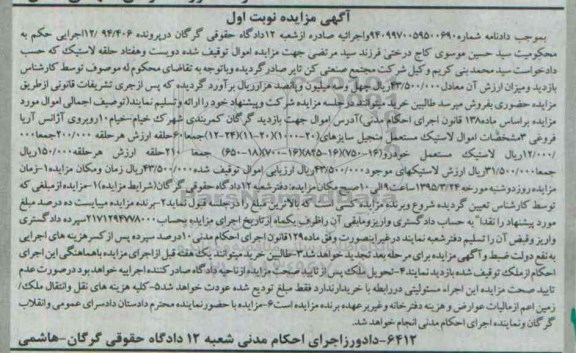 آگهی مزایده نوبت اول
بموجب دادنامه شماره ۹۴۰۹۹۷۰۰۵۹۵۰۰۶۹۰ واجرائیه صادره ازشعبه ۱۲دادگاه حقوقی گرگان درپرونده ۹۴/۴۰۶ /۱۲اجرایی حکم به
محکومیت سید حسین موسوی کاج درختی فرزند سید مرتضی جهت مزایده اموال توقیف شده دویست وهفتاد حلقه لاستیک که حسب
دادخواست سید محمد بنی کریم وکیل شرکت مجتمع صنعتی کن تایر صادر گردیده وباتوجه به تقاضای محکوم له موصوف توسط کارشناس
بازدید ومیزان ارزش آن معادل ۴۳/۵۰۰/۰۰۰ریال چهل وسه میلیون وپانصد هزارریال برآورد گردیده که پس ازجری تشریفات قانونی ازطریق
مزایده حضوری بفروش میرسد طالبین خرید میتوانند درجلسه مزایده شرکت وپیشنهاد خود را ارائه وتسلیم نمایند(توصیف اجمالی اموال مورد
مزایده براساس ماده۱۳۸ قانون اجرای احکام مدنی)آدرس اموال جهت بازدید گرگان کمربندی شهرک خیام-خیام۱۰روبروی آژانس آریا
فروغی ۳مشخصات اموال لاستیک مستعمل منجیل سایزهای(۲۰-۱۰۰۰)(۲۰-۱۱)(۲۴-۱۲)جمعا۶۰حلقه ارزش هر حلقه ۲۰۰/۰۰۰جمعا۰۰۰
/۱۲/۰۰۰ریال لاستیک مستعمل خودرو(۱۶-۷۵۰)(۱۶-۸۲۵)(۱۶-۷۰۰)(۱۸-۶۵۰) جمعا ۲۱۰حلقه ارزش هرحلقه۱۵۰/۰۰۰ریال
جمعا۳۱/۵۰۰/۰۰۰ریال ارزش لاستیکهای موجود۴۳/۵۰۰/۰۰۰ریال ارزیابی اموال توقیف شده۴۳/۵۰۰/۰۰۰ریال زمان ومکان مزایده۱-زمان
مزایده روزدوشنبه مورخه ۱۳۹۵/۳/۲۴ساعت۹الی۱۰صبح مکان مزایده:دفترشعبه ۱۲دادگاه حقوقی گرگان(شرایط مزایده)۱-مزایده ازمبلغی که
توسط کارشناس تعیین گردیده شروع وبرنده مزایده کسی است که بالاترین مبلغ رادرجلسه قبول نماید۲-برنده مزایده میبایست ده درصد مبلغ
مورد پیشنهاد را نقدا" به حساب دادگستری واریزومابقی آن راظرف یکماه ازتاریخ اجرای مزایده بحساب۲۱۷۱۲۹۴۷۷۸۰۰۰سپرده دادگستری
واریز وقبض آن را تسلیم دفترشعبه نمایند درغیراینصورت وفق ماده۱۲۹قانون اجرای احکام مدنی۱۰درصد سپرده پس ازکسرهزینه های اجرایی
به نفع دولت ضبط وآگهی مزایده برای مرحله بعد تجدید خواهد شد۳-طالبین خرید میتوانند یک هفته قبل ازاجرای مزایده باهماهنگی این اجرای
احکام ازملک توقیف شده بازدید نمایند۴-تحویل ملک پس ازتایید صحت مزایده ازناحیه دادگاه صادرکننده اجراییه خواهد بود درصورت عدم
تایید صحت مزایده این اجراء مسئولیتی دررابطه با خریدارندارد فقط مبلغ تودیع شده عودت خواهد شد۵-کلیه هزینه های نقل وانتقال ملک/
زمین اعم ازمالیات عوارض و هزینه دفترخانه وغیره برعهده برنده مزایده است۶-مزایده با حضورنماینده محترم دادستان دادسرای عمومی وانقلاب
گرگان ونماینده اجرای احکام مدنی انجام خواهد شد.
۶۴۱۲-دادورزاجرای احکام مدنی شعبه ۱۲ دادگاه حقوقی گرگان-هاشمی